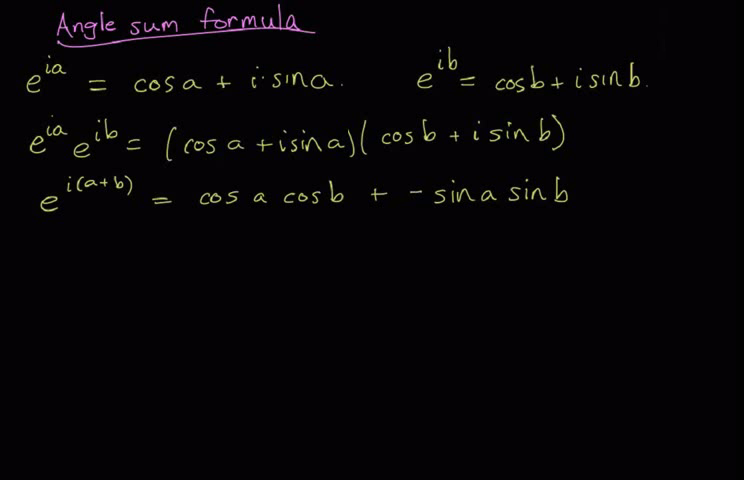 Angle sum formula
e^{ia} = cos a + i·sin a. e^{ib} = cos b + i sin b.
e^{ia} e^{ib} = (cos a + i sin a)(cos b + i sin b)
e^{i(a+b)} = cos a cos b + - sin a sin b